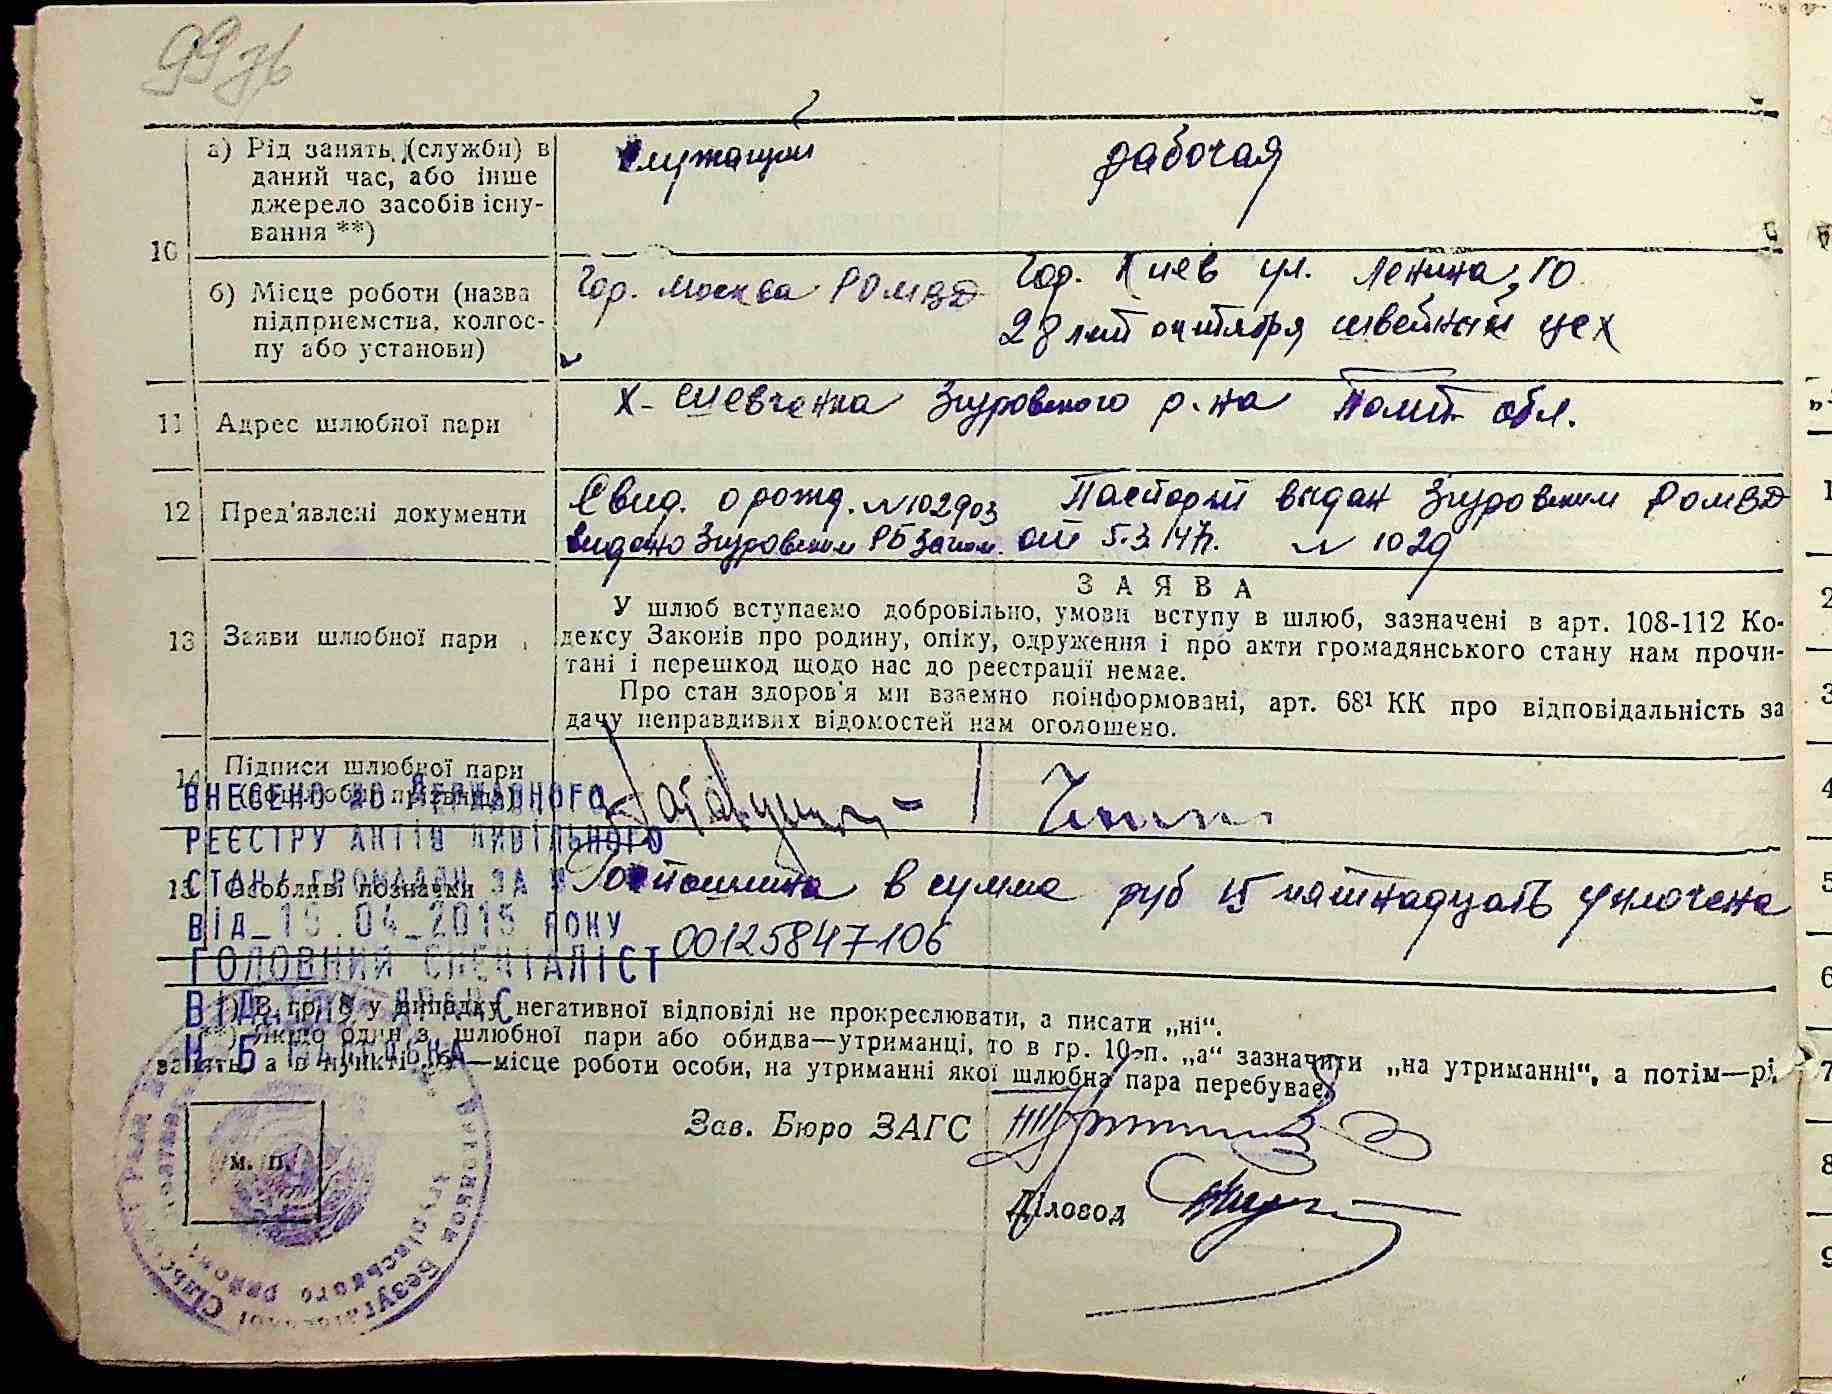 99зв
а) Рід занять (служби) в
даний час, або інше
джерело засобів існу-
вання **)
служащий
рабочая
10
б) Місце роботи (назва
підприємства, колгос-
пу або установи)
Гор. Москва РОМВД
Гор. Киев ул. Ленина, 10
28 лит октября швейный цех
11 Адрес шлюбної пари
х- Шевченка Згуровского р-на Полт. обл.
12 Пред'явлені документи
Свид. о рожд. №102903
видано Згуровским РБ Загсом.
Паспорт выдан Згуровским РОМВД
от 5.3.147г. № 1029
13 Заяви шлюбної пари
ЗАЯВА
У шлюб вступаємо добровільно, умови вступу в шлюб, зазначені в арт. 108-112 Ко-
дексу Законів про родину, опіку, одруження і про акти громадянського стану нам прочи-
тані і перешкод щодо нас до реєстрації немає.
Про стан здоров'я ми взаємно поінформовані, арт. 68¹ КК про відповідальність за
дачу неправдивих відомостей нам оголошено.
14 Підписи шлюбної пари
15 Особливі позначки
Госпошлина в сумма руб 15 пятнадцать уплочена
ВНЕСЕНО ДО ДЕРЖАВНОГО
РЕЄСТРУ АКТІВ ЦИВІЛЬНОГО
СТАНУ ГРОМАДЯН ЗА №
00125847106
ВІД 15.04.2015 РОКУ
ГОЛОВНИЙ СПЕЦІАЛІСТ
*) В гр. 8 у випадку негативної відповіді не прокреслювати, а писати „ні“.
**) Якщо один з шлюбної пари або обидва—утриманці, то в гр. 10 п. „а“ зазначити „на утриманні“, а потім—рі
занять, а в пункті „б“—місце роботи особи, на утриманні якої шлюбна пара перебуває.
Зав. Бюро ЗАГС
м. п.
Діловод
1
2
3
4
5
6
7
8
9